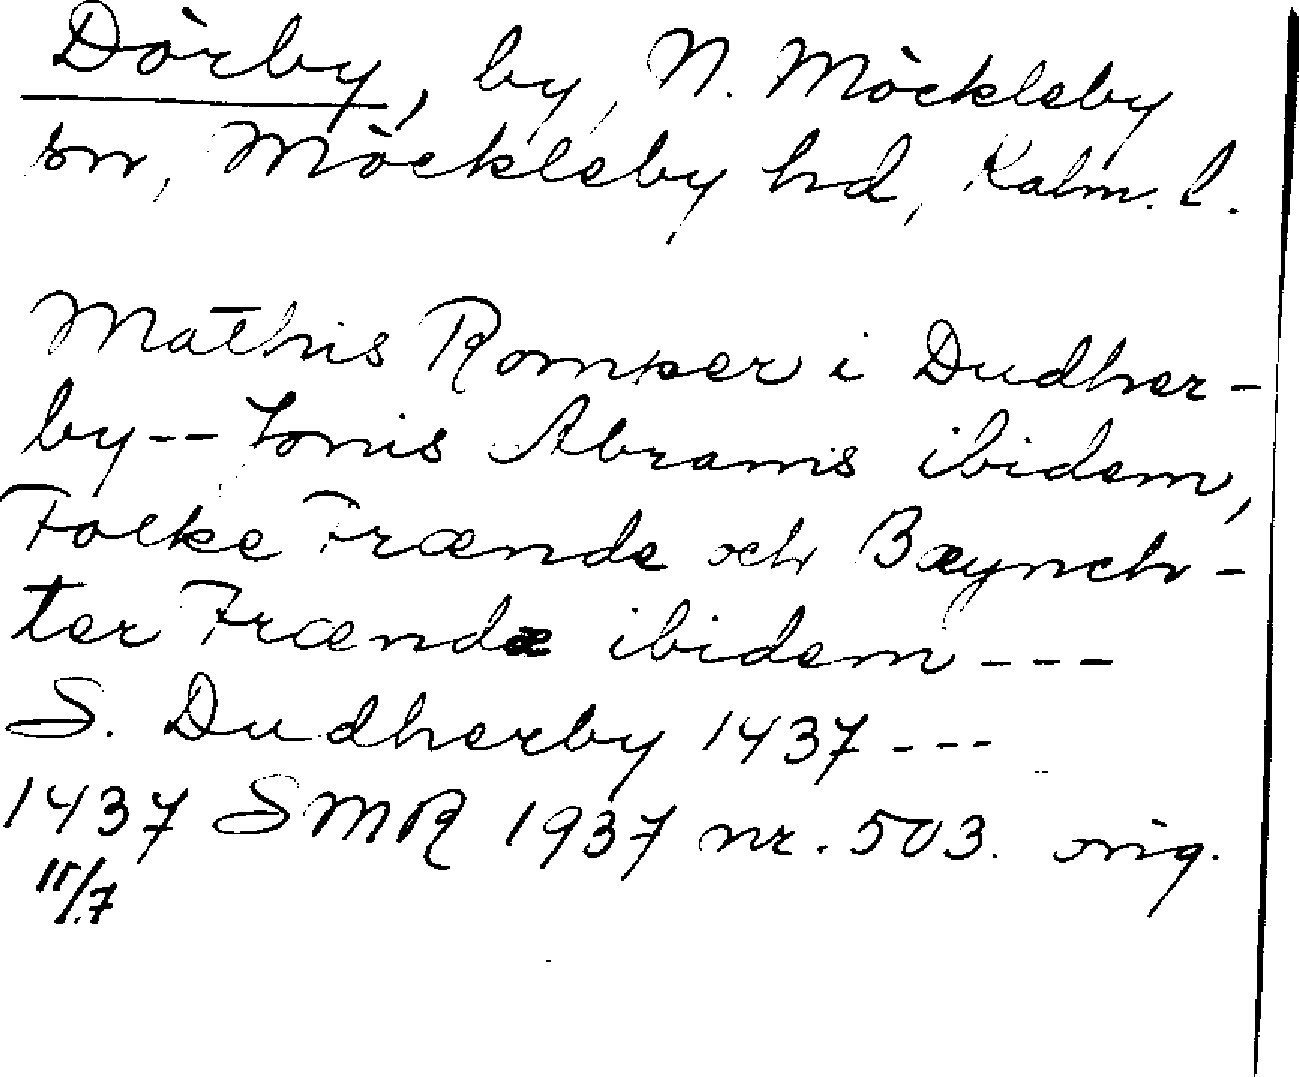 Dörby, by, N. Möckleby
sn, Möckleby hd, Kalm. l.
Mathis Romper i Dudher-
by -- Jonis Abrams ibidem,
Folke Frænde och Bæynch-
ter Frændæ ibidem ---
S. Dudherby 1437 ---
1437 SMR 1937 nr. 503. orig.
15/7